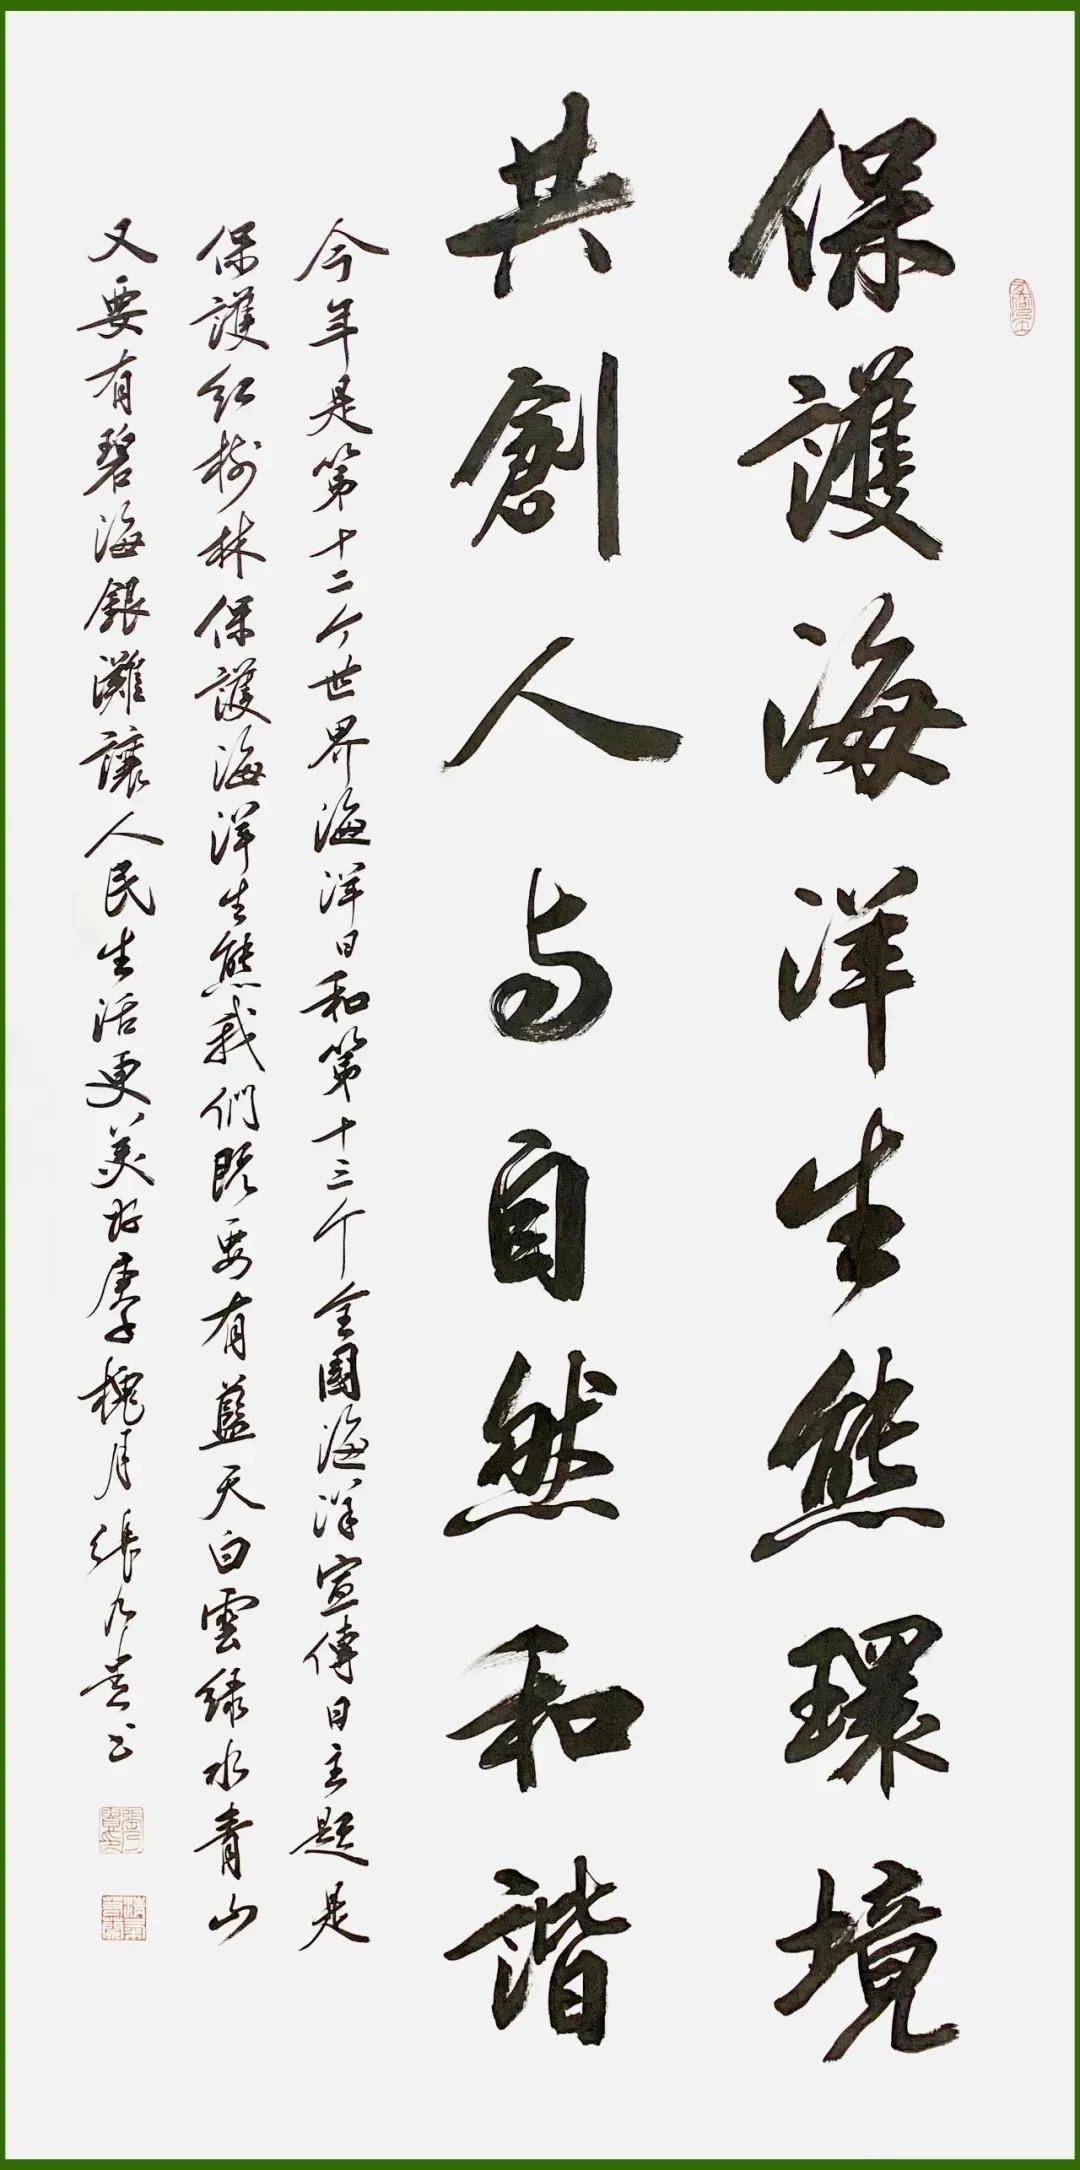 保護海洋生態環境
共創人与自然和諧
今年是第十二个世界海洋日和第十三个全國海洋宣傳日主題是
保護紅樹林保護海洋生態我們既要有藍天白雲綠水青山
又要有碧海銀灘讓人民生活更美好庚子槐月張九贵书